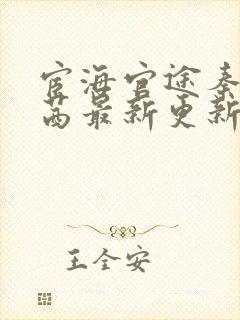 宦海官途秦
茜最新更新
王全安